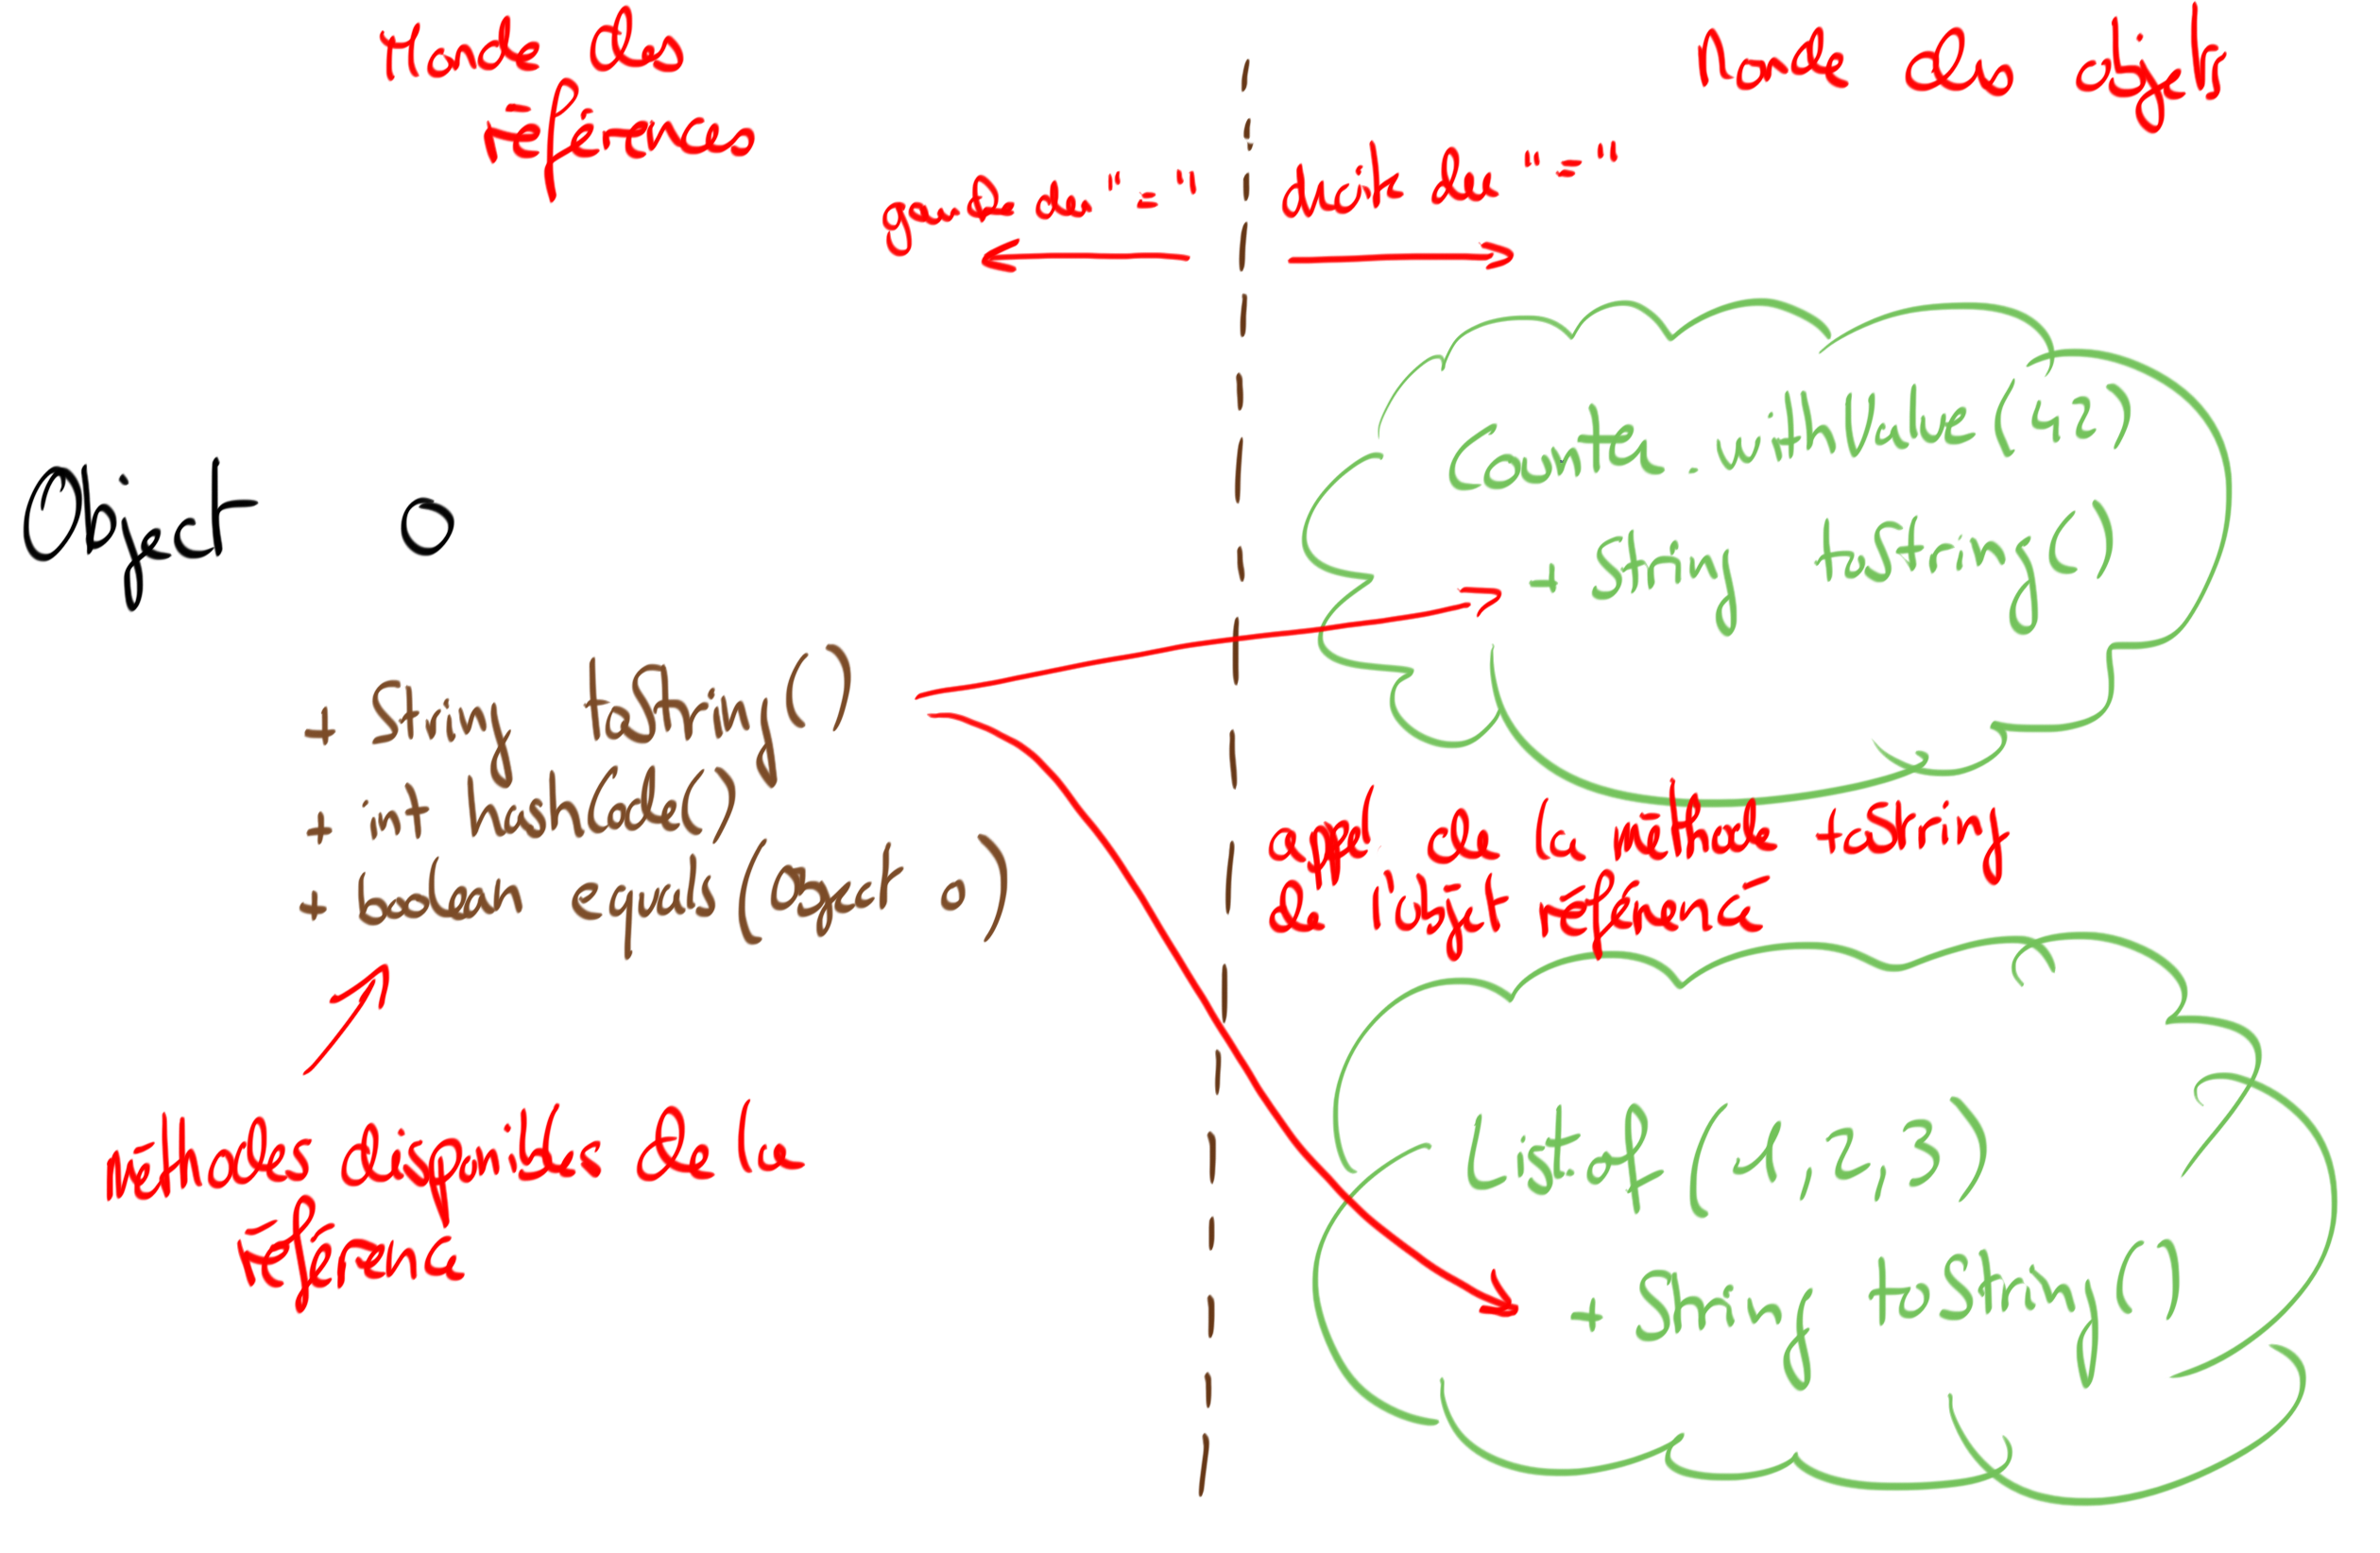 Monde des
références
Monde des objets
gauche du "="
droite du "="
Object o
+ String toString()
+ int hashCode()
+ boolean equals(Object o)
méthodes disponibles de la
référence
Counter.withValue(42)
+ String toString()
appel de la méthode toString
de l'objet référencé
List.of(1,2,3)
+ String toString()